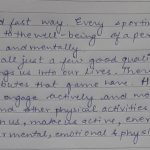 d fast way. Every sportin
to the well-being of a pe
and mentally.
all just a few good quali
ngs us into our lives. There
butes that game have. H
engage actively and mo
and other physical activities
us, makes us active, ener
r mental, emotional & physi